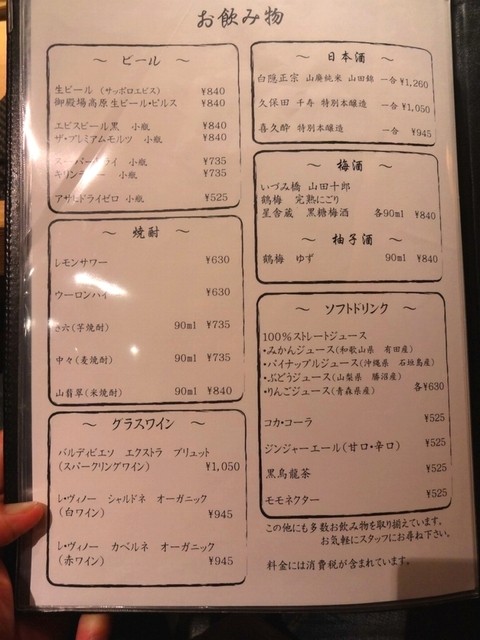 お飲み物
～ ビール ～
生ビール (サッポロエビス) ¥840
御殿場高原生ビール・ピルス ¥840
エビスビール黒 小瓶 ¥840
ザ・プレミアムモルツ 小瓶 ¥840
スーパードライ 小瓶 ¥735
キリンラガー 小瓶 ¥735
アサヒドライゼロ 小瓶 ¥525
～ 焼酎 ～
レモンサワー ¥630
ウーロンハイ ¥630
さ六(芋焼酎) 90ml ¥735
中々(麦焼酎) 90ml ¥735
山翡翠(米焼酎) 90ml ¥840
～ グラスワイン ～
バルディビエソ エクストラ ブリュット
(スパークリングワイン) ¥1,050
レ・ヴィノー シャルドネ オーガニック
(白ワイン) ¥945
レ・ヴィノー カベルネ オーガニック
(赤ワイン) ¥945
～ 日本酒 ～
白隠正宗 山廃純米 山田錦 一合 ¥1,260
久保田 千寿 特別本醸造 一合 ¥1,050
喜久酔 特別本醸造 一合 ¥945
～ 梅酒 ～
いづみ橋 山田十郎
鶴梅 完熟にごり
星舎蔵 黒糖梅酒 各90ml ¥840
～ 柚子酒 ～
鶴梅 ゆず 90ml ¥840
～ ソフトドリンク ～
100%ストレートジュース
・みかんジュース(和歌山県 有田産)
・パイナップルジュース(沖縄県 石垣島産)
・ぶどうジュース(山梨県 勝沼産)
・りんごジュース(青森県産) 各¥630
コカ・コーラ ¥525
ジンジャーエール(甘口・辛口) ¥525
黒烏龍茶 ¥525
モモネクター ¥525
この他にも多数お飲み物を取り揃えています。
お気軽にスタッフにお尋ね下さい。
料金には消費税が含まれています。